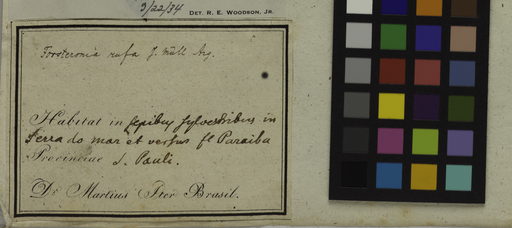 3/22/34 DET. R. E. WOODSON, JR.
Forsteronia rufa J. Müll Arg.
Habitat in sepibus sylvestribus in
Serra do mar et versus fl Paraiba
Provinciae S. Pauli.
Dr Martius Iter Brasil.